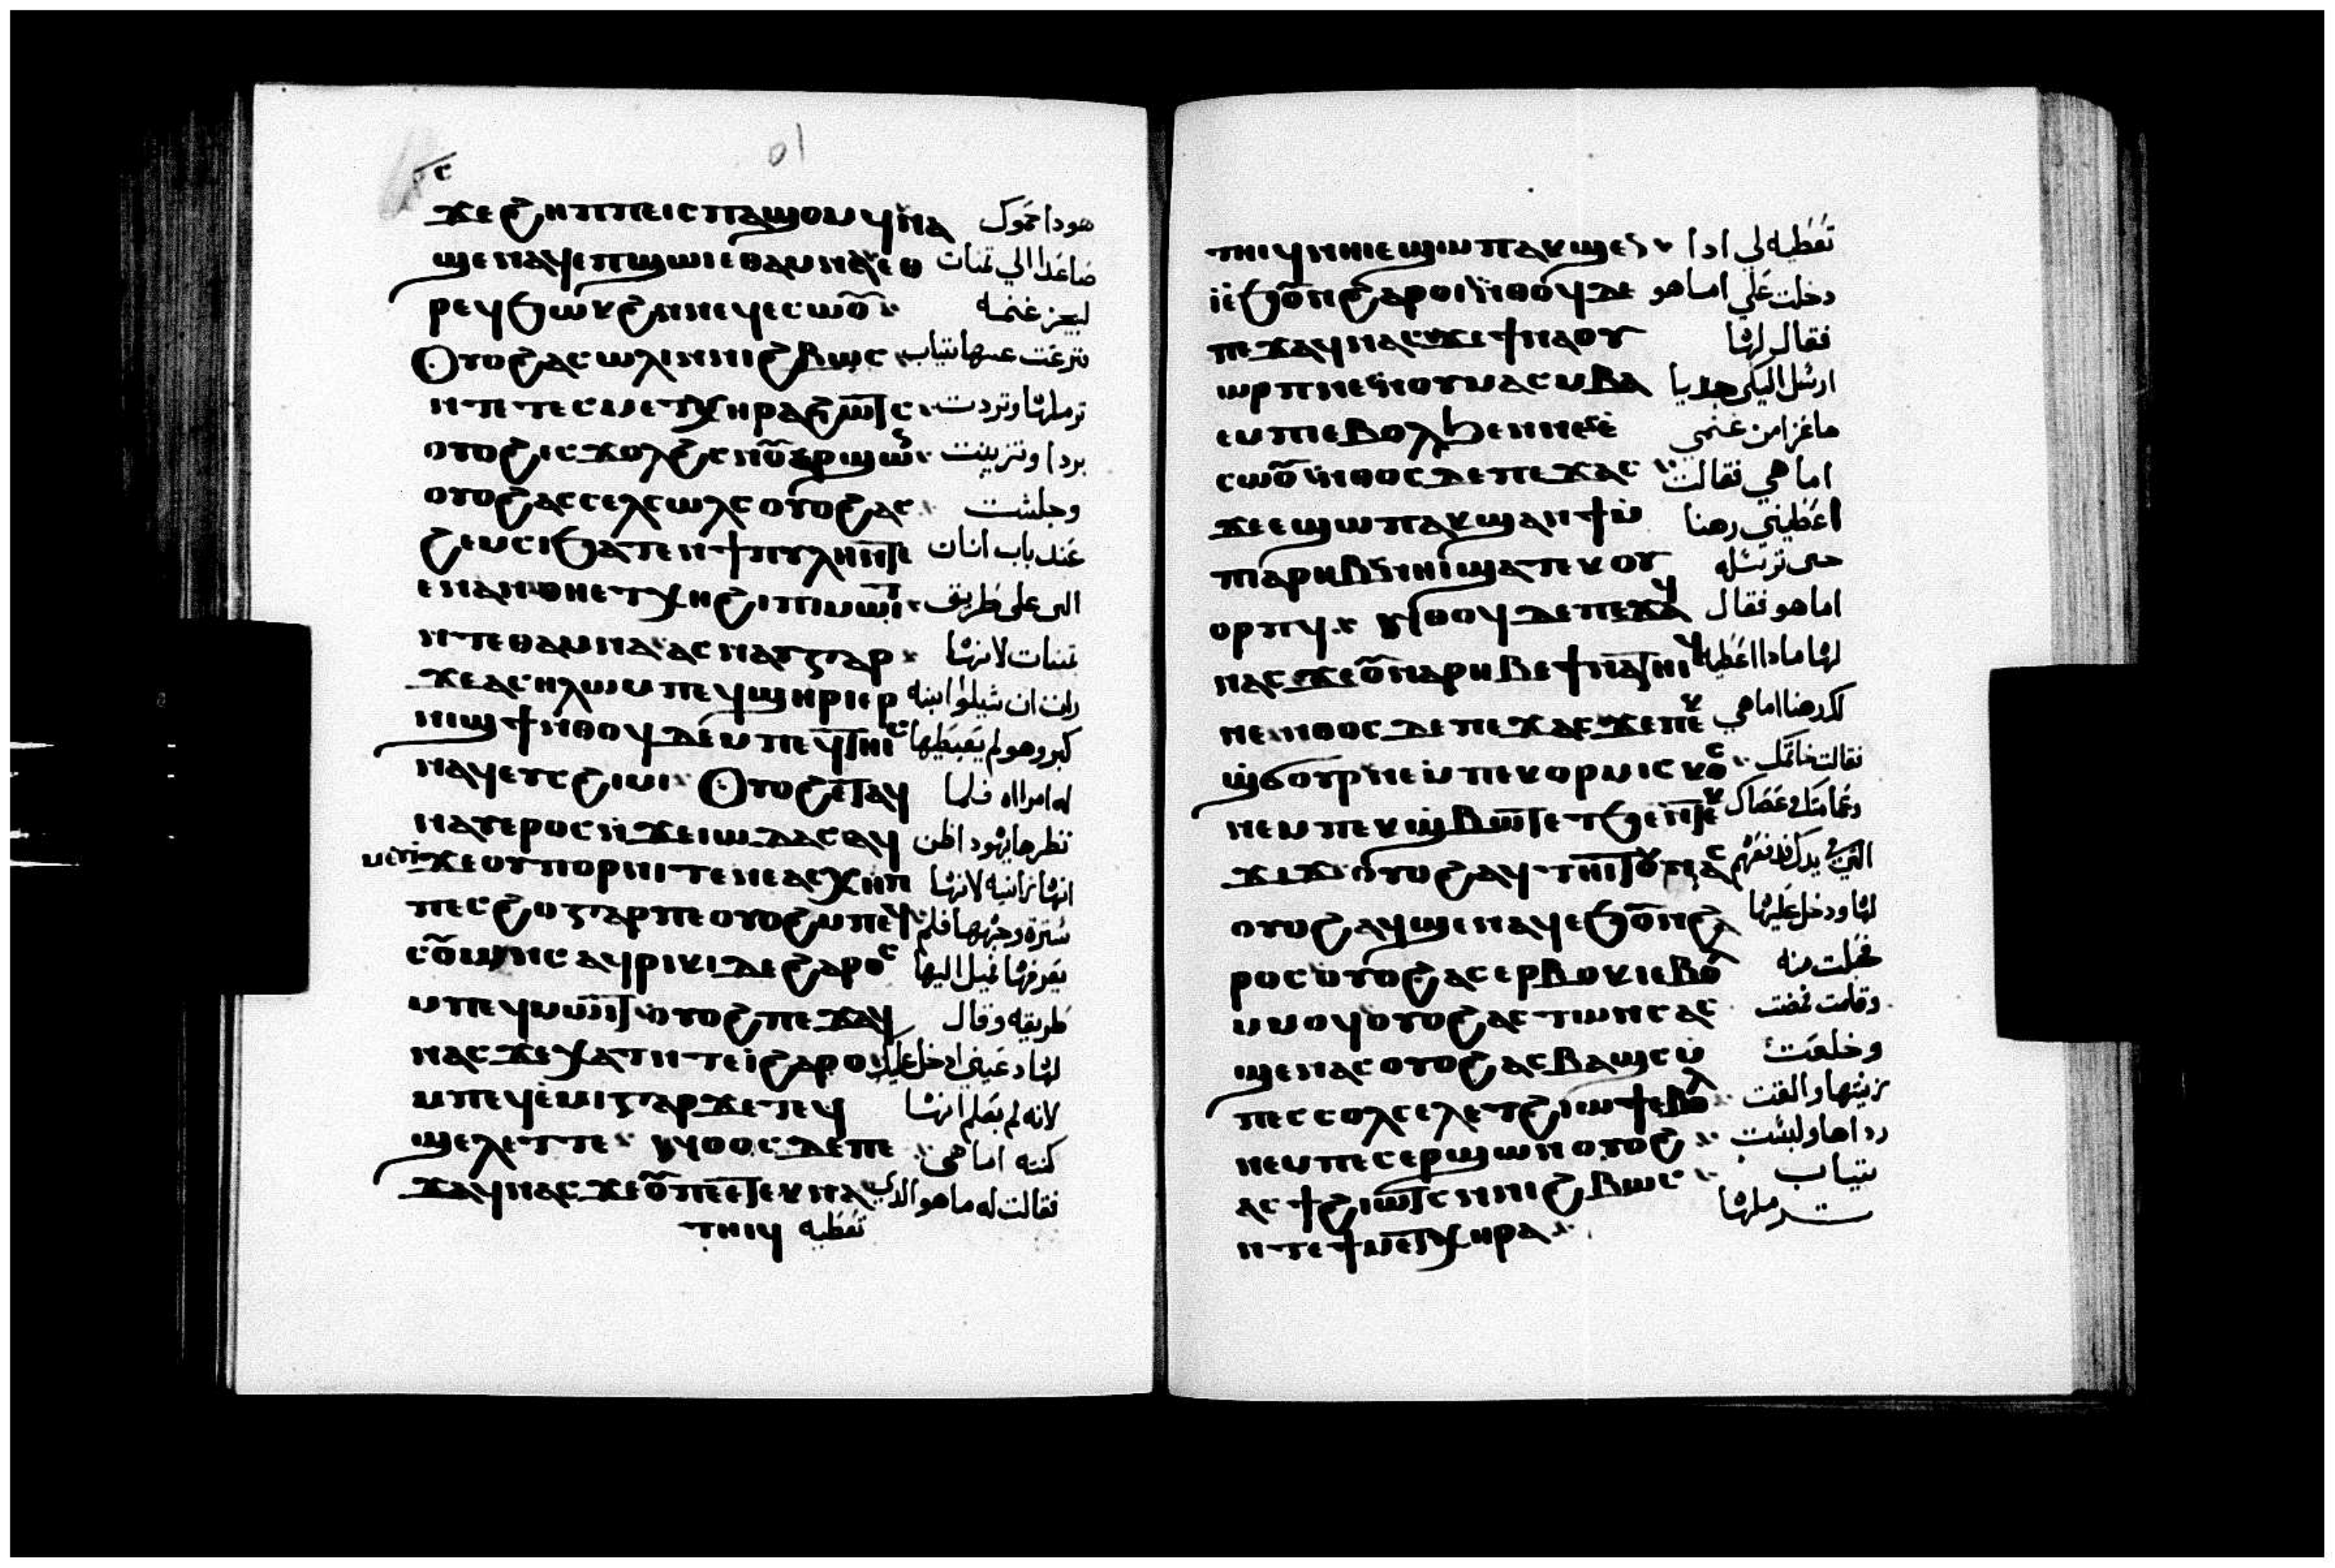 ϫⲉ ϩⲏⲡⲡⲉ ⲓⲥ ⲡⲁϣⲟⲙ ϥⲛⲁ هودا حموك
ϣⲉⲛⲁϥ ⲉⲡϣⲱⲓ ⲉⲑⲁⲙⲛⲁ ⲉⲑ صاعدا الي تمنات
ⲣⲉϥϧⲱⲕ ϩⲛⲛⲉϥⲉⲥⲱⲟ̄ ليجز غنمه
Ⲟⲩⲟϩ ⲁⲥⲱⲗⲓ ⲛⲛⲓϩⲃⲱⲥ فنزعت عنها تياب
ⲛⲧⲉ ⲧⲉⲥⲙⲉⲧⲭⲏⲣⲁ ϩⲓⲱⲧⲥ ترملها وتردت
ⲟⲩⲟϩ ⲉⲥϫⲟⲗϩⲥ ⲛⲟ̄ⲉⲣϣⲱⲛ بردا وتزينت
ⲟⲩⲟϩ ⲁⲥⲥⲉⲗⲥⲱⲗⲥ ⲟⲩⲟϩ ⲁⲥ وجلست
ϩⲉⲙⲥⲓ ϧⲁⲧⲉⲛ ϯⲡⲩⲗⲏ ⲛⲧⲉ عند باب انان
ⲉⲛⲁⲛ ⲑⲏⲉⲧⲭⲏ ϩⲓ ⲡⲓⲙⲱⲓⲧ التى على طريق
ⲛⲧⲉ ⲑⲁⲙⲛⲁ ⲁⲥⲛⲁⲩ ⲅⲁⲣ تمنات لانها
ϫⲉ ⲁⲥⲏⲗⲱⲙ ⲡⲉϥϣⲏⲣⲓ ⲉⲣ رات ان شيلوا ابنه
ⲛⲓϣϯ ⲛⲑⲟϥ ⲇⲉ ⲙⲡⲉϥⲧⲏⲓⲥ كبر وهو لم يعطيها
ⲛⲁϥ ⲉⲩⲥϩⲓⲙⲓ Ⲟⲩⲟϩ ⲉⲧⲁϥ له امراه فلما
ⲛⲁⲩ ⲉⲣⲟⲥ ⲛϫⲉ ⲓⲱⲇⲁⲥ ⲁϥ نظرها يهودا ظن
ⲙⲉⲩⲓ ϫⲉ ⲟⲩⲡⲟⲣⲛⲓ ⲧⲉ ⲛⲉ ⲁⲥⲭⲏⲡ انها زانيه لانها
ⲡⲉⲥϩⲟ ⲅⲁⲣ ⲡⲉ ⲟⲩⲟϩ ⲙⲡⲉϥ سترة وجهها فلم
ⲥⲟ̄ⲱⲛⲥ ⲁϥⲣⲓⲕⲓ ⲇⲉ ϩⲁⲣⲟⲥ يعرفها فميل اليها
ⲙⲡⲉϥⲙⲱⲓⲧ ⲟⲩⲟϩ ⲡⲉϫⲁϥ طريقه وقال
ⲛⲁⲥ ϫⲉ ⲭⲁⲧ ⲛⲧⲉⲓ ϩⲁⲣⲟ لها دعيني ادخل عليك
ⲙⲡⲉϥⲉⲙⲓ ⲅⲁⲣ ϫⲉ ⲧⲉϥ لانه لم يعلم انها
ϣⲉⲗⲉⲧ ⲧⲉ ⲛⲑⲟⲥ ⲇⲉ ⲡⲉ كنته اما هي
ϫⲁϥ ⲛⲁⲥ ϫⲉ ⲟ̄ ⲡⲉⲧⲉⲕⲛⲁ فقالت له ما هو الدي
ⲧⲏⲓϥ تعطيه
ⲧⲏⲓϥ ⲛⲏⲓ ⲉϣⲱⲡ ⲁⲕϣⲉ تعطيه لي ادا
ⲓ̀ⲉ̀ϧⲟ̄ⲛ ϩⲁⲣⲟⲓ ⲛⲑⲟϥ ⲇⲉ دخلت علي اما هو
ⲡⲉϫⲁϥ ⲛⲁⲥ ϫⲉ ϯⲛⲁⲟⲩ فقال لها
ⲱⲣⲡ ⲛⲉ ⲛⲟⲩⲙⲁⲥⲙⲃⲁ ارسل اليكي جديا
ⲉⲙⲡⲓ ⲉⲃⲟⲗ ϧⲉⲛ ⲛⲁⲉ ماعزا من غنمي
ⲥⲱⲟ̄ ⲛⲑⲟⲥ ⲇⲉ ⲡⲉϫⲁⲥ اما هي فقالت
ϫⲉ ⲉϣⲱⲡ ⲁⲕϣⲁⲛϯ ⲙ̀ اعطيني رهنا
ⲡⲁⲣⲏⲃ ⲛⲏⲓ ϣⲁⲧⲉⲕⲟⲩ حتى ترسله
ⲟⲣⲡϥ ⲛⲑⲟϥ ⲇⲉ ⲡⲉϫⲁϥ اما هو فقال
ⲛⲁⲥ ϫⲉ ⲟ̄ ⲛⲁⲣⲏⲃ ⲉϯⲛⲁⲧⲏⲓϥ لها مادا اعطيه
ⲛⲉ ⲛⲑⲟⲥ ⲇⲉ ⲡⲉϫⲁⲥ ϫⲉ ⲡⲉⲕ لك رهنا اما هي
ϣϭⲟⲩⲣ ⲛⲉⲙ ⲡⲉⲕⲟⲣⲙⲓⲥⲕⲟⲥ فقالت خاتمك
ⲛⲉⲙ ⲡⲉⲕϣⲃⲱⲧ ⲉⲧϧⲉⲛ ⲧⲉⲕ وعمامتك وعصاك
ϫⲓϫ ⲟⲩⲟϩ ⲁϥⲧⲏⲓⲧⲟⲩ ⲛⲁⲥ التي في يدك فدفعهم
ⲟⲩⲟϩ ⲁϥϣⲉⲛⲁϥ ⲉϧⲟ̄ⲛ ϩⲁ لها ودخل عليها
ⲣⲟⲥ ⲟⲩⲟϩ ⲁⲥⲉⲣⲃⲟⲕⲓ ⲉⲃⲟⲗ فحبلت منه
ⲙⲙⲟϥ ⲟⲩⲟϩ ⲁⲥⲧⲱⲛⲥ ⲁⲥ وقامت فمضت
ϣⲉⲛⲁⲥ ⲟⲩⲟϩ ⲁⲥⲃⲁϣⲥ ⲙ̀ وخلعت
ⲡⲉⲥⲥⲟⲗⲥⲉⲗ ⲉⲧϩⲓⲱϯ ⲉⲃⲟⲗ زينتها والقت
ⲛⲉⲙ ⲡⲉⲥⲉⲣϣⲱⲛ ⲟⲩⲟϩ رداها ولبست
ⲁⲥϯ ϩⲓⲱⲧⲥ ⲛⲛⲓϩⲃⲱⲥ تياب
ⲛⲧⲉ ϯⲙⲉⲧⲭⲏⲣⲁ ترملها